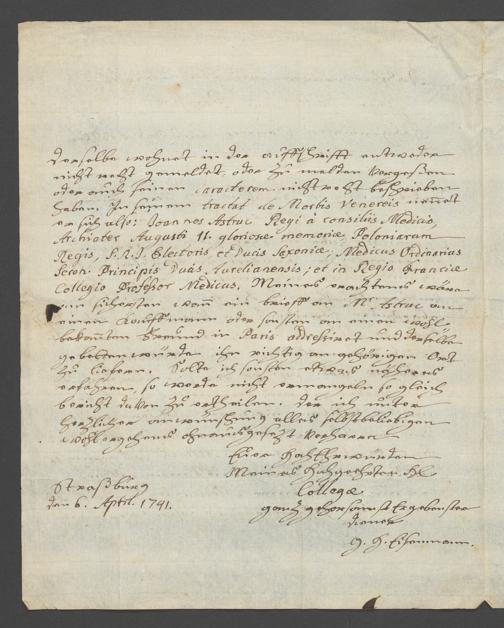 derselbe wohnet in der auffschrifft entweder
nicht recht gemeldet, oder zu melden vergessen
oder auch seinen caracterem nicht recht beschrieben
haben. In seinem tractat de Morbis Venereis nennet
er sich also: Joannes Astruc Regi à consiliis, Medicis,
Archiater Augusti II. gloriosæ memoriæ, Poloniarum
Regis, S.R.I. Electoris et Ducis Saxoniæ; Medicus Ordinarius
Seren. Principis Ducis Aurelianensis; et in Regio Franciæ
Collegio Professor Medicus. Meines erachtens wäre
am sichersten wann ein brieff an Mr. Astruc an
einen Kauffmann oder sonsten an einen wohl
bekannten Freund in Paris addressiret und derselbe
gebetten wurde, ihn richtig an gehörigen Ort
zu liefern. Solte ich sonsten etwas näheres
erfahren, so werde nicht ermangeln so gleich
bericht davon zu ertheilen. Der ich unter
hertzlicher anwünschung alles selbstbeliebigen
Wohlergehens ohnausgesetzt verharre
Euer HochEhrwürden
Meines Hochgeehrten H
Collegæ
Straßburg
den 6. April. 1741.
gantz gehorsamst Ergebenster
diener
G. H. Eisenmann.